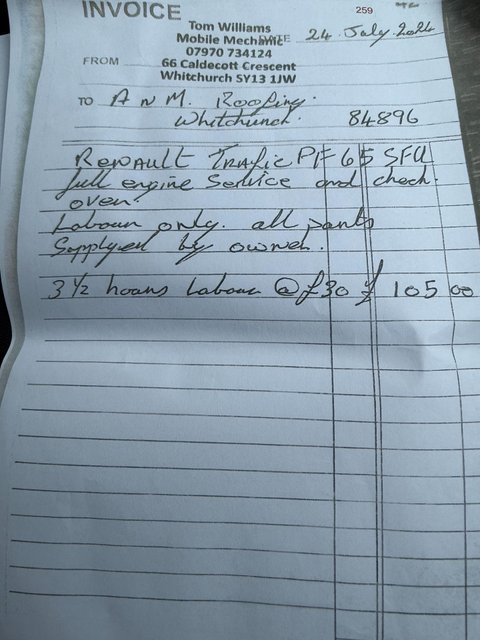 INVOICE
259
Tom Williams
Mobile Mechanic
DATE 24. July. 2024
07970 734124
FROM 66 Caldecott Crescent
Whitchurch SY13 1JW
TO A N M. Roofing.
Whitchurch. 84896
Renault Trafic PF65 SFU
full engine Service and check
over.
Labour only. all parts
Supplyed by owner.
3 1/2 hours Labour @ £30 £ 105 00